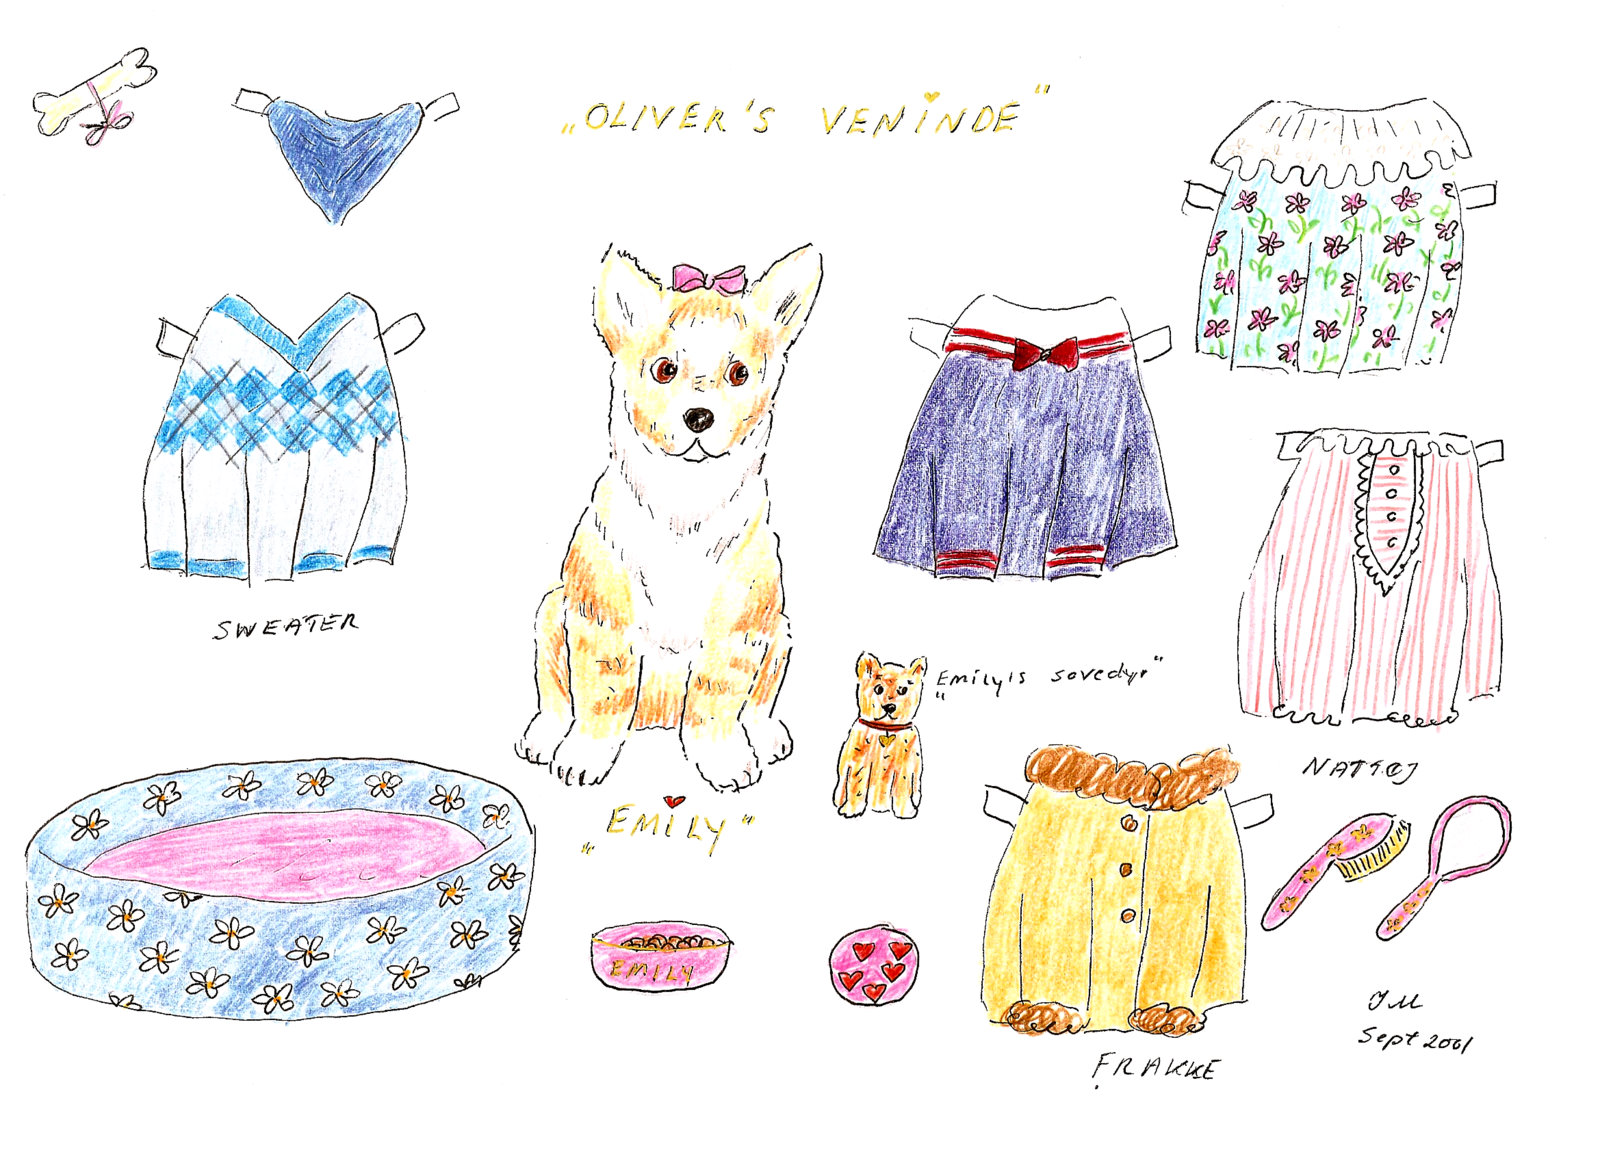 „OLIVER'S VENINDE"
SWEATER
„Emily's sovedyr"
NATTØJ
„EMILY"
EMILY
JM
Sept 2001
FRAKKE